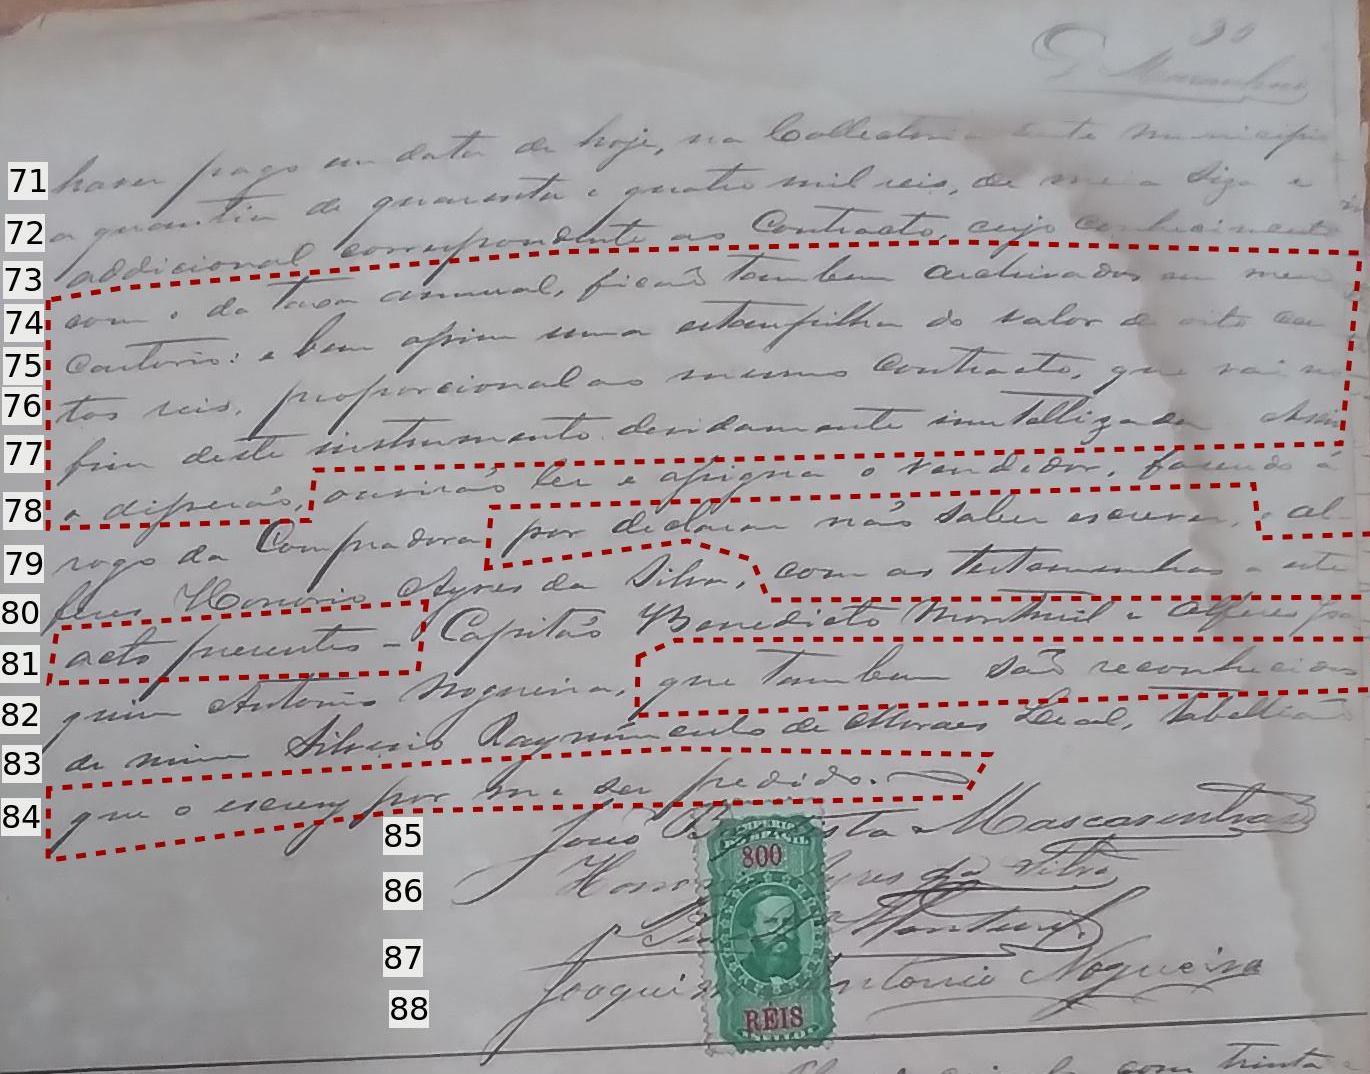 30
71 haver pago em data de hoje, na Collectoria deste municipio
72 a quantia de quarenta e quatro mil reis, de meia siza e
73 addicional correspondente ao Contracto, cujo conhecimento
74 com o da taxa annual, ficaõ tambem archivados em meu
75 Cartorio: e bem assim uma estampilha do valor de oito cen
76 tos reis, proporcional ao mesmo contracto, que vai no
77 fim deste instrumento devidamente inutillizada. Assim
78 o disseraõ, ouviraõ ler e assigna o vendedor, fasendo á
79 rogo da Compradora por declarar naõ saber escrever, o Al-
80 feres Honorio Ayres da Silva, com as testemunhas a este
81 acto presentes - Capitaõ Benedicto Montuil e Alferes Joa
82 quim Antonio Nogueira, que tambem saõ reconhecidos
83 de mim Silverio Raymundo de Moraes Leal, Tabelliaõ
84 que o escrevy por me ser pedido.
85 Joaõ Baptista Mascarenhas
86 Honorio Ayres da Silva
87
88 Joaquim Antonio Nogueira
800
REIS
com trinta e